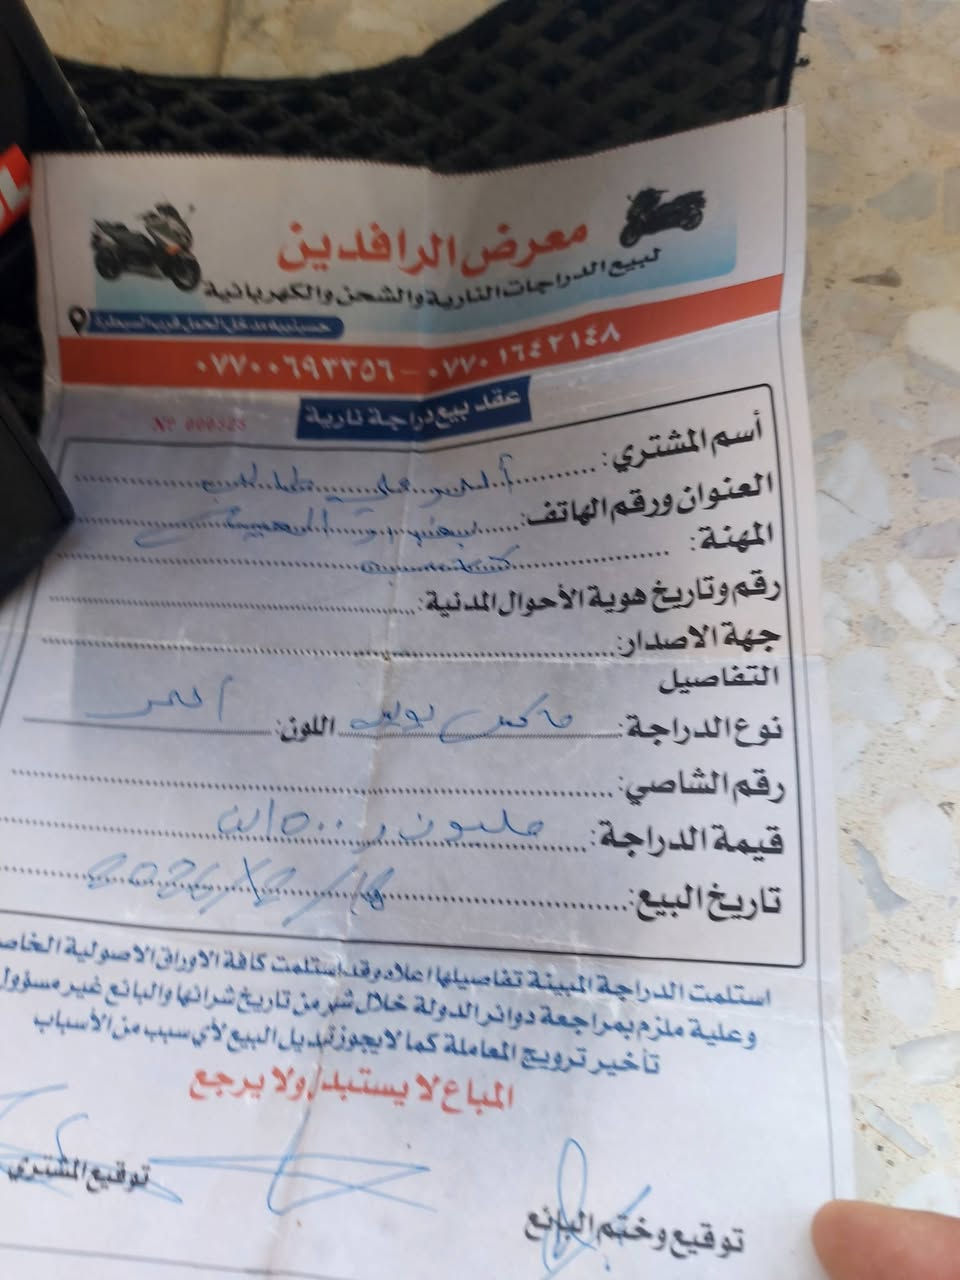 معرض الرافدين
لبيع الدراجات النارية والشحن والكهربائية
حسينية مدخل الحمل قرب السيطرة
٠٧٧٠٠٦٩٣٣٥٦ - ٠٧٧٠١٦٤٣١٤٨
عقد بيع دراجة نارية
Nº 000525
أسم المشتري:
العنوان ورقم الهاتف:
المهنة:
رقم وتاريخ هوية الأحوال المدنية:
جهة الاصدار:
التفاصيل
نوع الدراجة: اللون: احمر
رقم الشاصي:
قيمة الدراجة: مليون و ٥٠٠ الف
تاريخ البيع:
استلمت الدراجة المبينة تفاصيلها اعلاه وقد استلمت كافة الاوراق الاصولية الخاصة
وعلية ملزم بمراجعة دوائر الدولة خلال شهر من تاريخ شرائها والبائع غير مسؤول
تأخير ترويج المعاملة كما لايجوز تبديل البيع لأي سبب من الأسباب
المباع لا يستبدل ولا يرجع
توقيع وختم البائع
توقيع المشتري